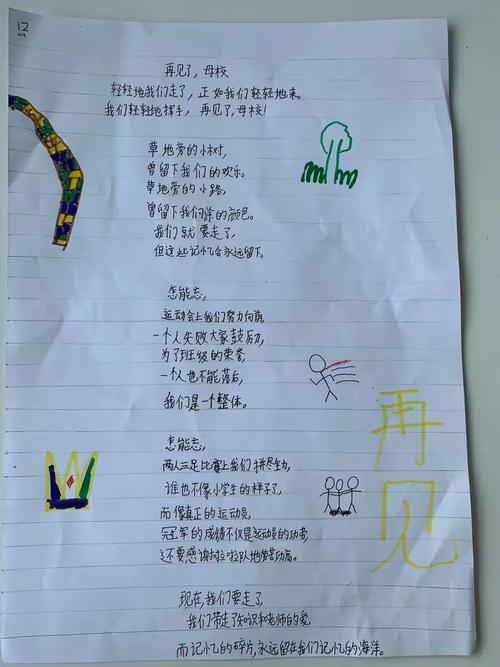 12
再见了,母校
轻轻地我们走了,正如我们轻轻地来。
我们轻轻地挥手,再见了,母校!
草地旁的小树,
曾留下我们的欢乐。
草地旁的小路,
曾留下我们涂的颜色。
我们就要走了,
但这些记忆会永远留下。
怎能忘,
运动会上我们努力向前,
一个人失败大家鼓励,
为了班级的荣誉,
一个人也不能落后,
我们是一个整体。
怎能忘,
两人三足比赛上我们拼尽全力,
谁也不像小学生的样子了,
而像真正的运动员,
冠军的成绩不仅是运动员的功劳,
还要感谢拉拉队地劳苦功高。
再见
现在,我们要走了,
我们带走了知识和老师的爱,
而记忆的碎片,永远留在我们记忆的海洋。